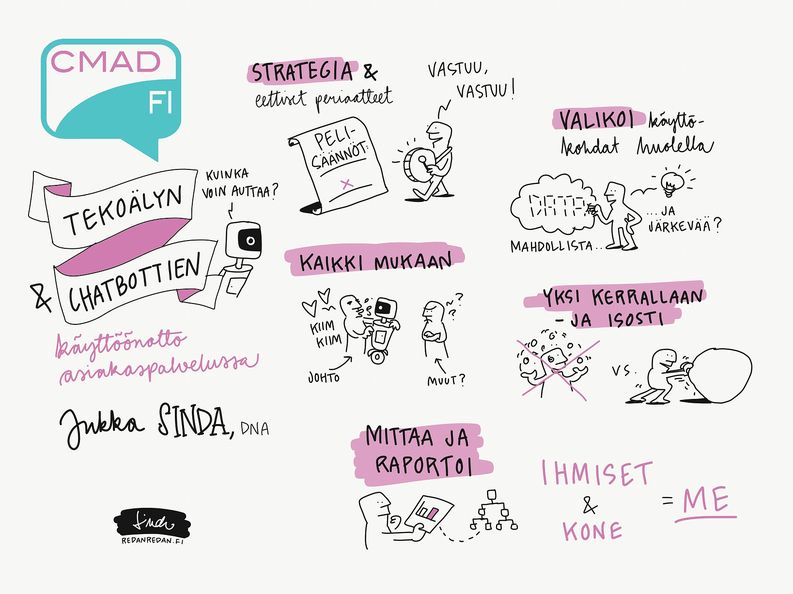 CMAD
FI
TEKOÄLYN
& CHATBOTTIEN
KUINKA
VOIN AUTTAA?
käyttöönotto
asiakaspalvelussa
Jukka SINDA, DNA
REDANREDAN.FI
STRATEGIA &
eettiset periaatteet
PELI-
SÄÄNNÖT:
VASTUU,
VASTUU!
KAIKKI MUKAAN
KIIM
KIIM
JOHTO
MUUT?
? ?
MITTAA JA
RAPORTOI
VALIKOI käyttö-
kohdat huolella
DATA
MAHDOLLISTA..
...JA
JÄRKEVÄÄ?
YKSI KERRALLAAN
- JA ISOSTI
VS.
IHMISET
&
KONE
= ME